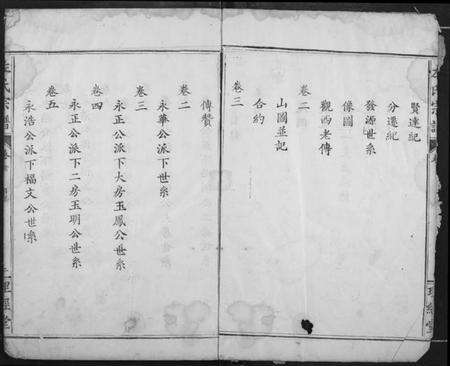 賢達紀
分遷紀
發源世系
像圖
觀西老傳
卷二
山圖並記
合約
卷三
傳贊
卷二
永華公派下世系
卷三
永正公派下大房玉鳳公世系
卷四
永正公派下二房玉明公世系
卷五
永浩公派下福文公世系
氏宗譜